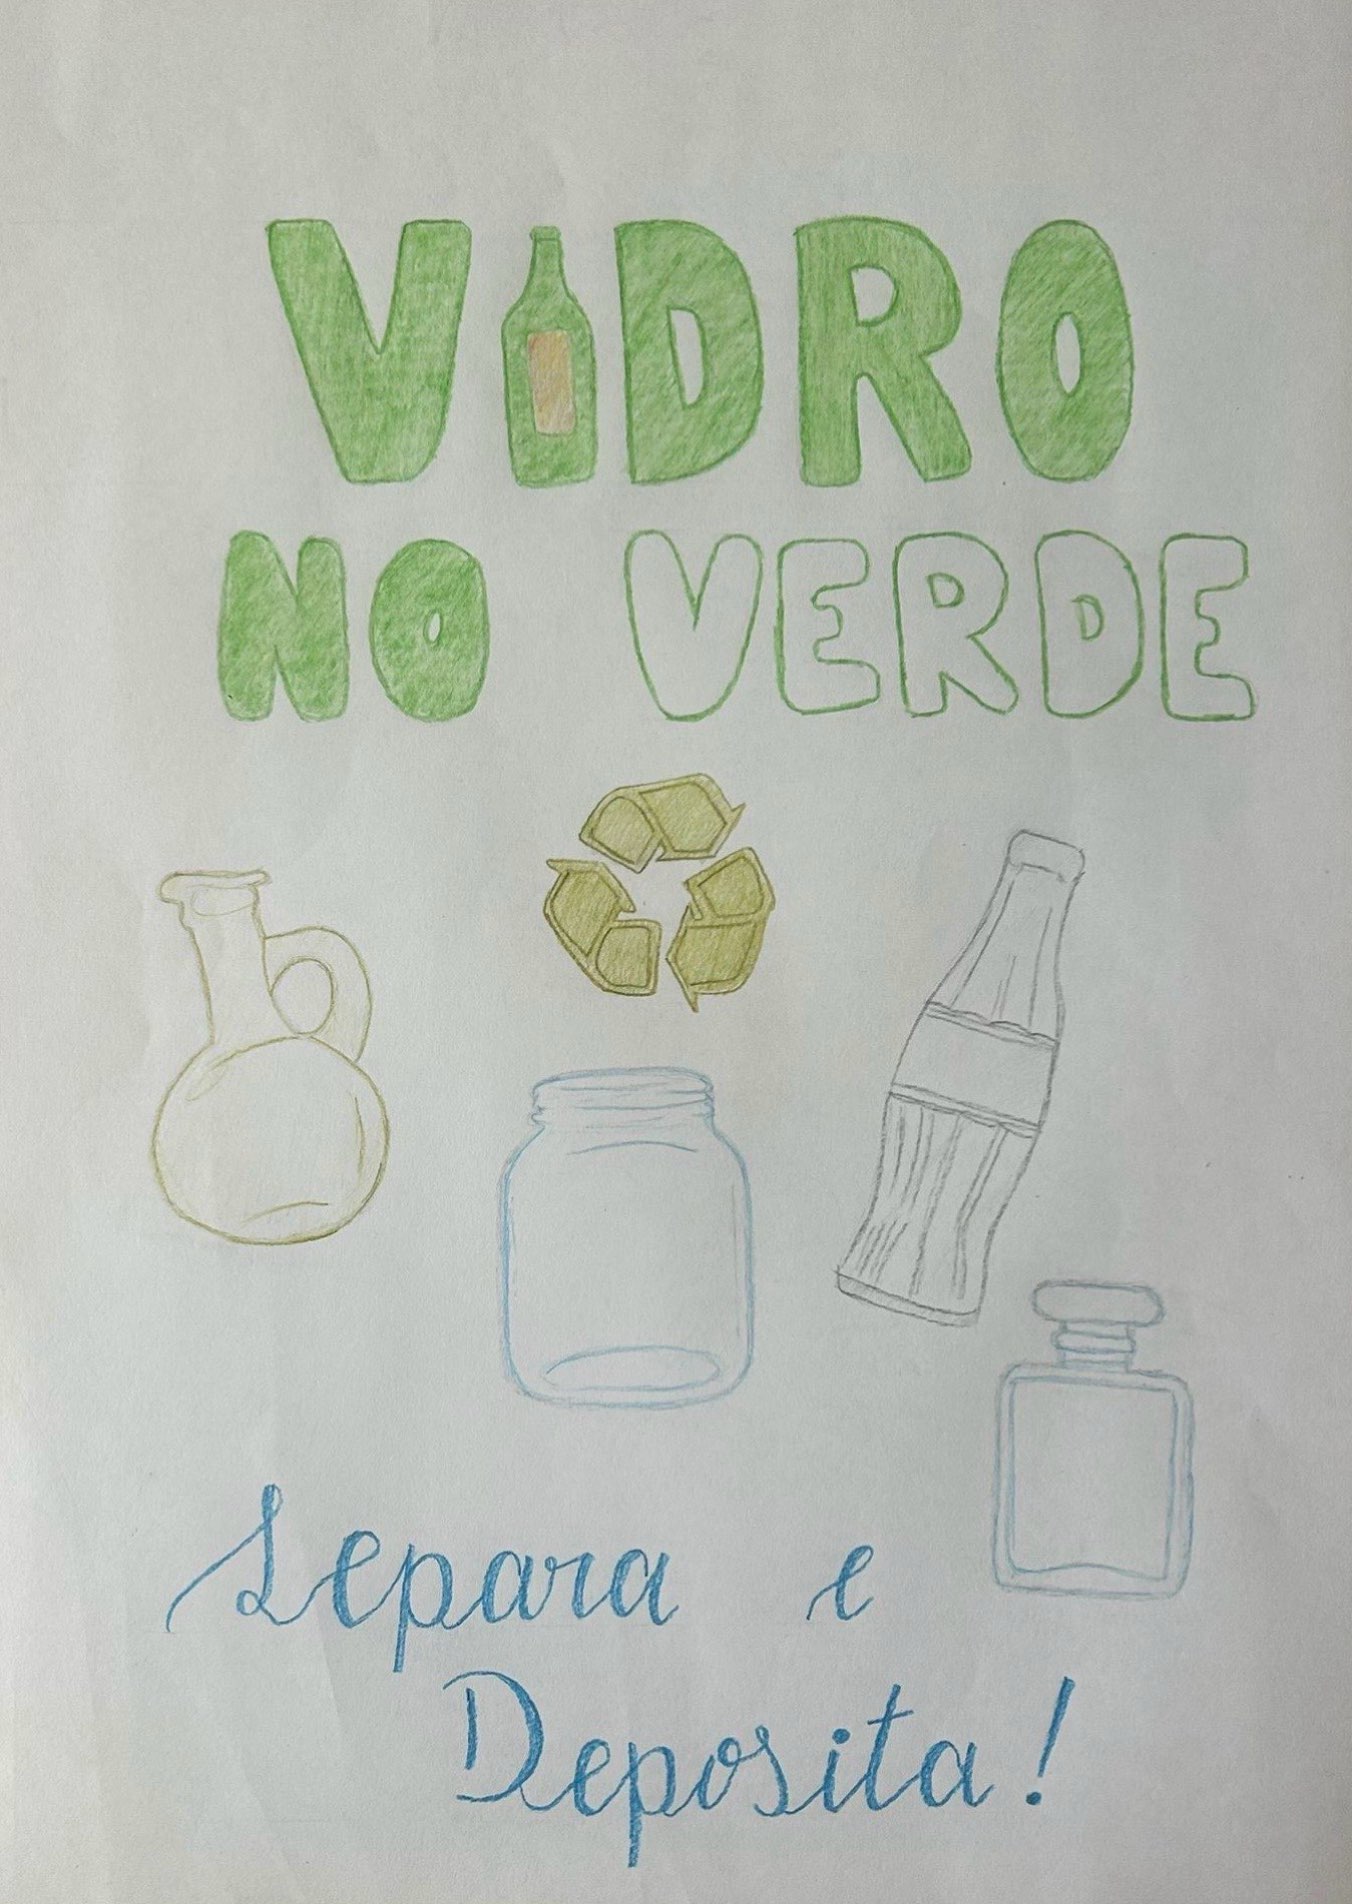 VIDRO
NO VERDE
Separa e
Deposita!